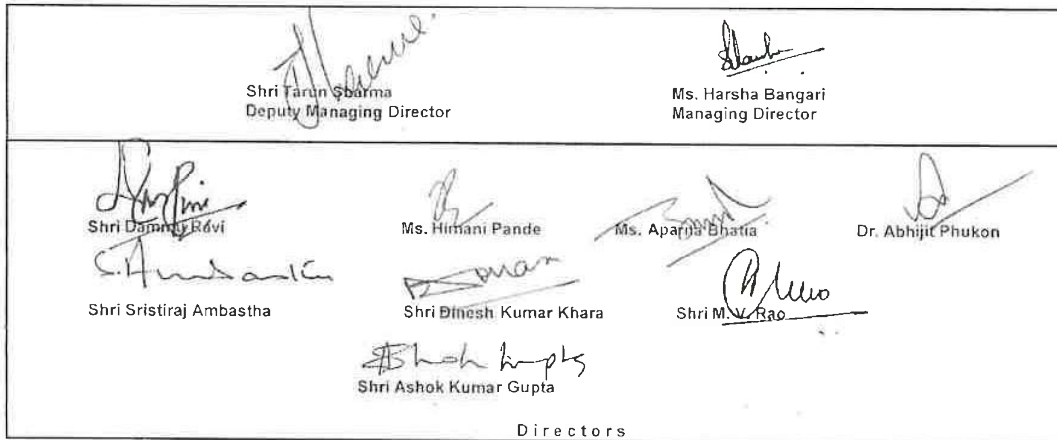 Shri Tarun Sharma
Deputy Managing Director
Ms. Harsha Bangari
Managing Director
Shri Dammu Ravi
Ms. Himani Pande
Ms. Aparna Bhatia
Dr. Abhijit Phukon
S. Ambastha
Shri Sristiraj Ambastha
Shri Dinesh Kumar Khara
Shri M. V. Rao
Ashok Gupta
Shri Ashok Kumar Gupta
Directors